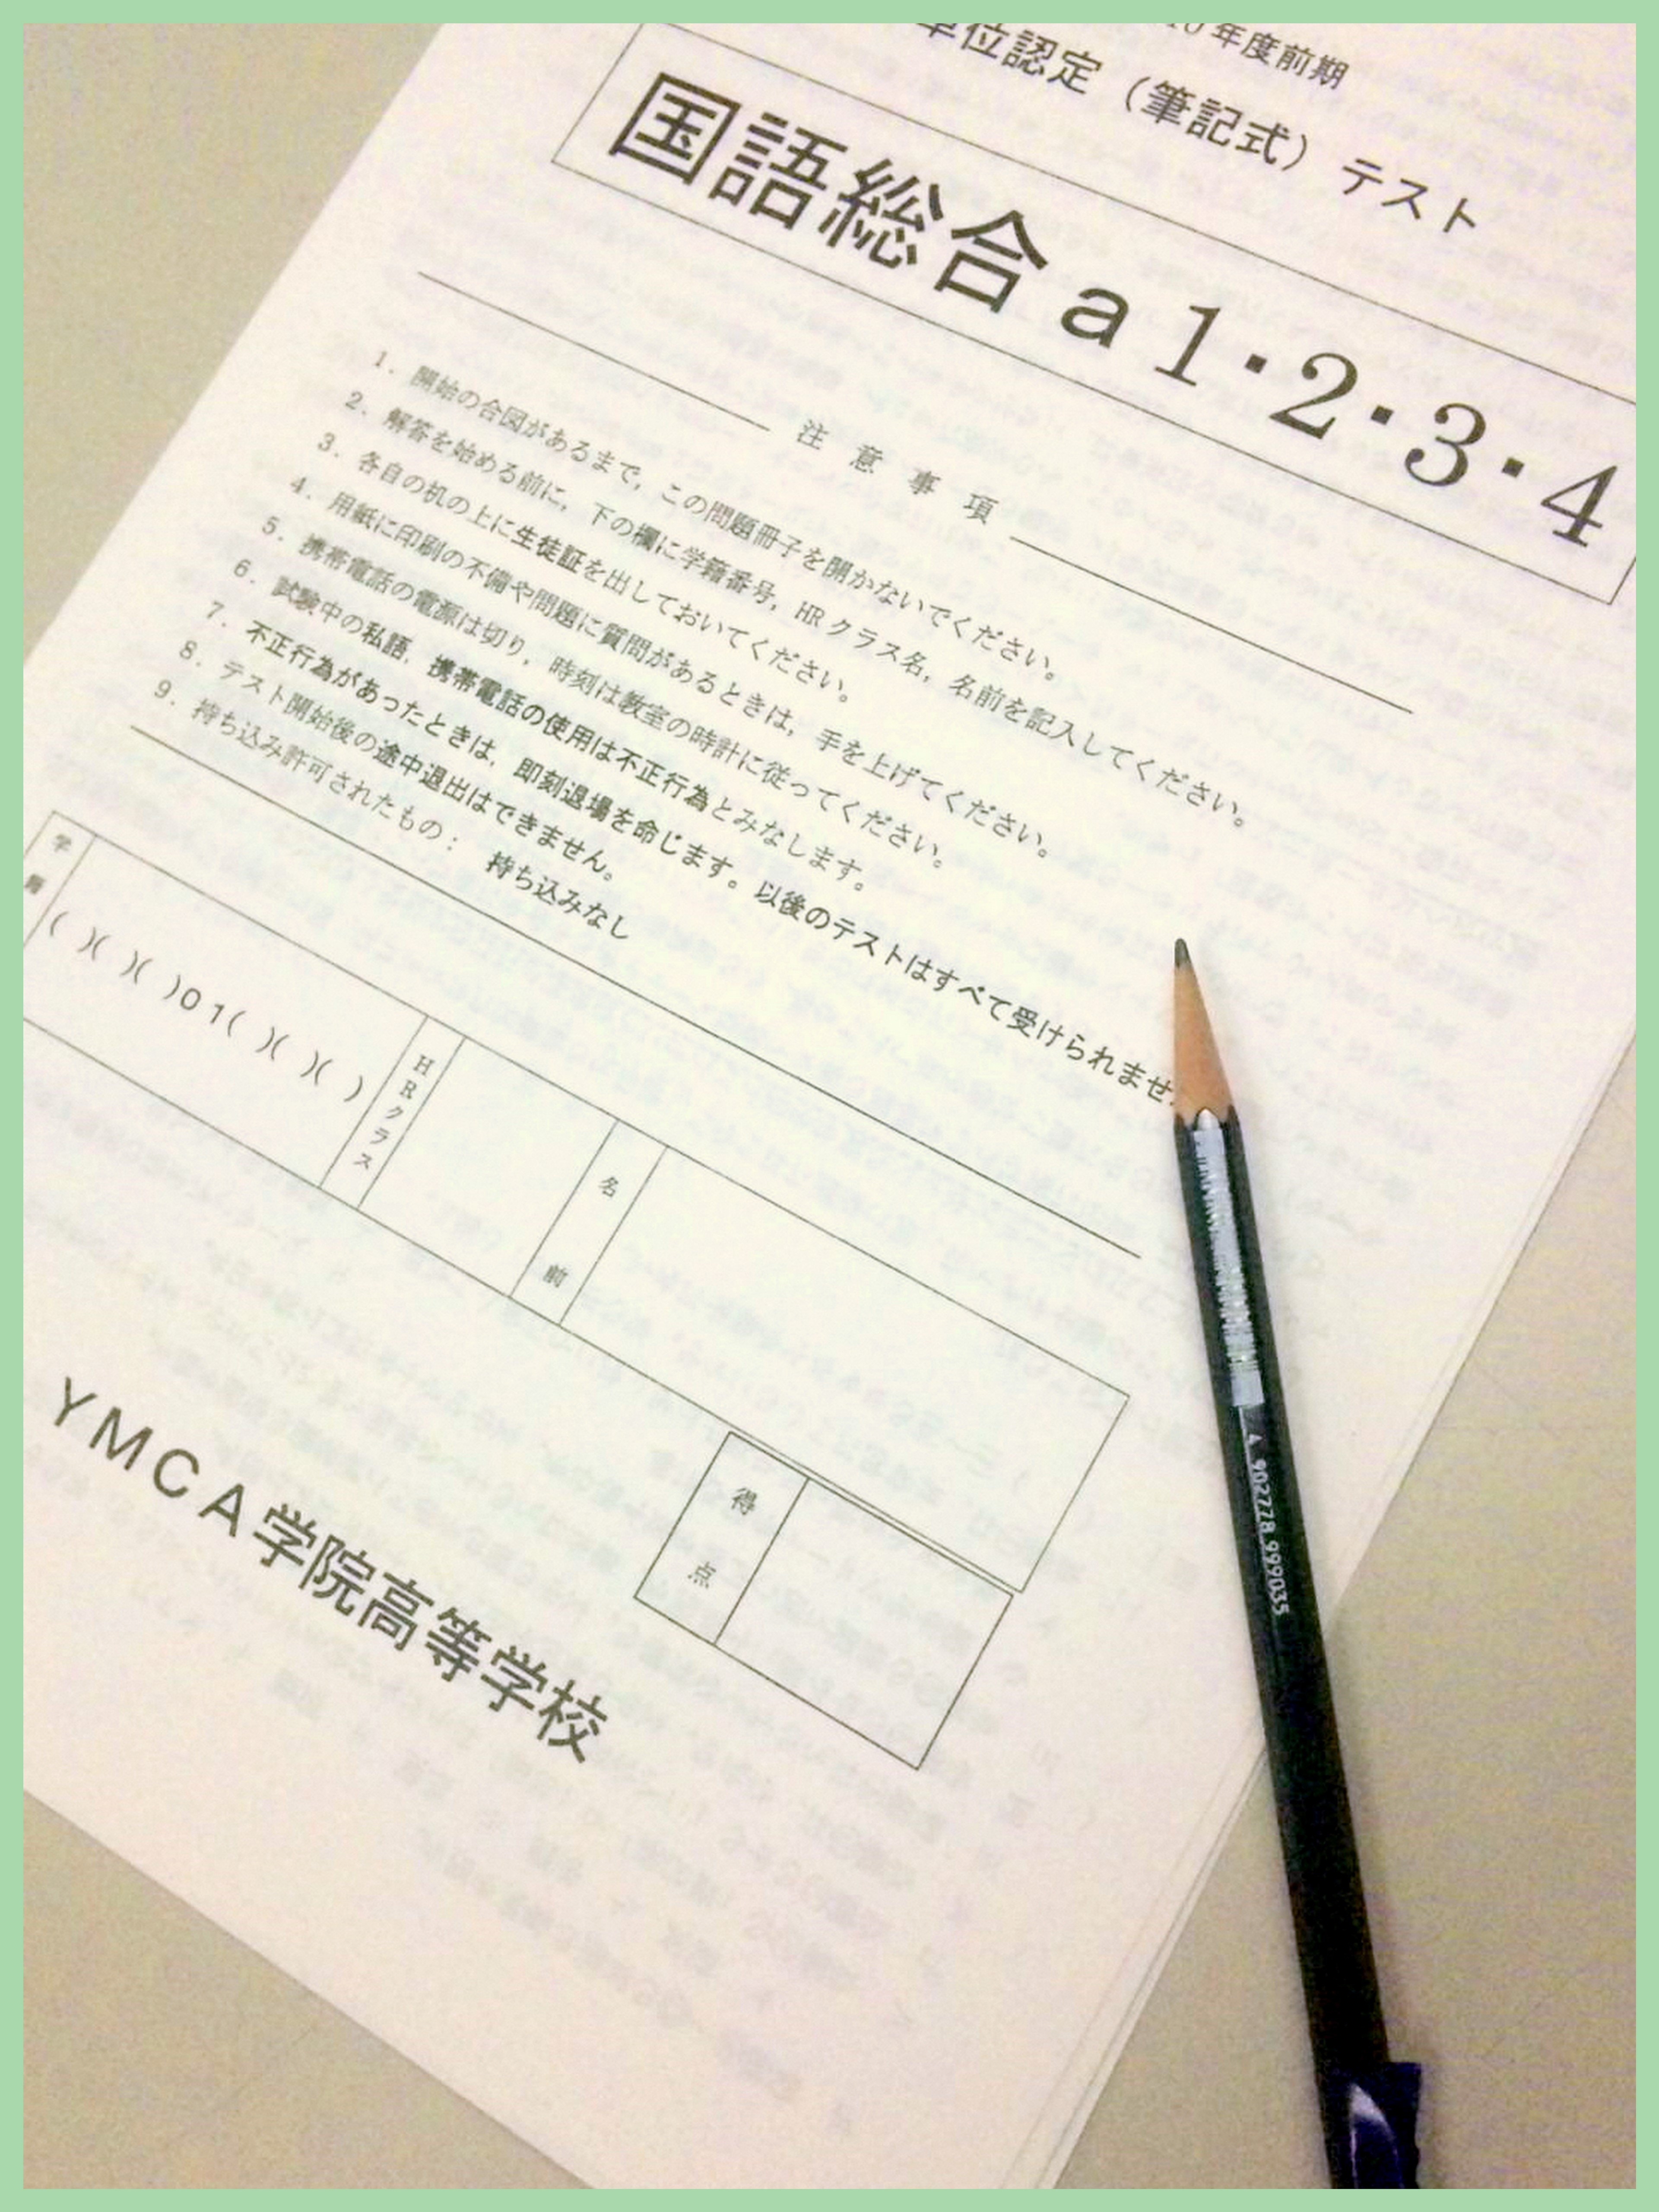 年度前期
単位認定（筆記式）テスト
国語総合a1・2・3・4
注意事項
1. 開始の合図があるまで，この問題冊子を開かないでください。
2. 解答を始める前に，下の欄に学籍番号，HRクラス名，名前を記入してください。
3. 各自の机の上に生徒証を出しておいてください。
4. 用紙に印刷の不備や問題に質問があるときは，手を上げてください。
5. 携帯電話の電源は切り，時刻は教室の時計に従ってください。
6. 試験中の私語，携帯電話の使用は不正行為とみなします。
7. 不正行為があったときは，即刻退場を命じます。以後のテストはすべて受けられませ
8. テスト開始後の途中退出はできません。
9. 持ち込み許可されたもの： 持ち込みなし
学
( )( )( )01( )( )( )
HRクラス
名前
得点
YMCA学院高等学校
4 902778 999035